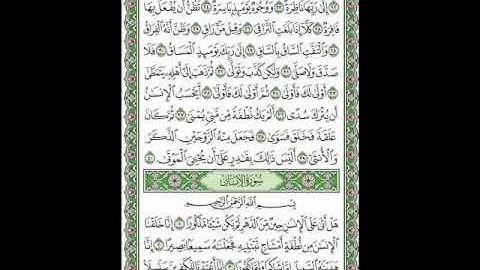 إِلَىٰ رَبِّهَا نَاظِرَةٌ ٢٣ وَوُجُوهٌ يَوْمَئِذٍ بَاسِرَةٌ ٢٤ تَظُنُّ أَن يُفْعَلَ بِهَا
فَاقِرَةٌ ٢٥ كَلَّا إِذَا بَلَغَتِ التَّرَاقِيَ ٢٦ وَقِيلَ مَنْ رَاقٍ ٢٧ وَظَنَّ أَنَّهُ الْفِرَاقُ
٢٨ وَالْتَفَّتِ السَّاقُ بِالسَّاقِ ٢٩ إِلَىٰ رَبِّكَ يَوْمَئِذٍ الْمَسَاقُ ٣٠ فَلَا
صَدَّقَ وَلَا صَلَّىٰ ٣١ وَلَٰكِن كَذَّبَ وَتَوَلَّىٰ ٣٢ ثُمَّ ذَهَبَ إِلَىٰ أَهْلِهِ يَتَمَطَّىٰ
٣٣ أَوْلَىٰ لَكَ فَأَوْلَىٰ ٣٤ ثُمَّ أَوْلَىٰ لَكَ فَأَوْلَىٰ ٣٥ أَيَحْسَبُ الْإِنسَانُ
أَن يُتْرَكَ سُدًى ٣٦ أَلَمْ يَكُ نُطْفَةً مِّن مَّنِيٍّ يُمْنَىٰ ٣٧ ثُمَّ كَانَ
عَلَقَةً فَخَلَقَ فَسَوَّىٰ ٣٨ فَجَعَلَ مِنْهُ الزَّوْجَيْنِ الذَّكَرَ
وَالْأُنثَىٰ ٣٩ أَلَيْسَ ذَٰلِكَ بِقَادِرٍ عَلَىٰ أَن يُحْيِيَ الْمَوْتَىٰ ٤٠
سُورَةُ الْإِنسَانِ
بِسْمِ اللَّهِ الرَّحْمَٰنِ الرَّحِيمِ
هَلْ أَتَىٰ عَلَى الْإِنسَانِ حِينٌ مِّنَ الدَّهْرِ لَمْ يَكُن شَيْئًا مَّذْكُورًا ١ إِنَّا خَلَقْنَا
الْإِنسَانَ مِن نُّطْفَةٍ أَمْشَاجٍ نَّبْتَلِيهِ فَجَعَلْنَاهُ سَمِيعًا بَصِيرًا ٢ إِنَّا
هَدَيْنَاهُ السَّبِيلَ إِمَّا شَاكِرًا وَإِمَّا كَفُورًا ٣ إِنَّا أَعْتَدْنَا لِلْكَافِرِينَ سَلَاسِلَا